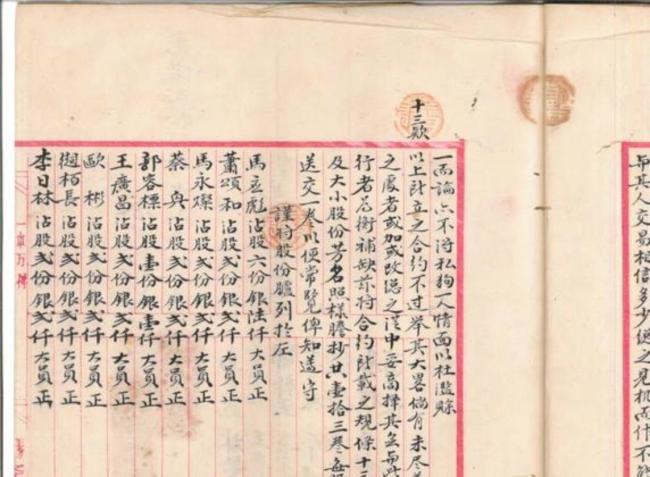 而其人交易相信多少總之見机而作不能
十三欵
一而論亦不得私狥人情面以杜濫賒
以上所立之合約不过举其大畧倘有未尽
之處者或加或改總之從中妥高擇其善而
行 補缺 将合約所載之規條十三
及大小股份芳名照樣謄抄共壹拾三本每
送交一本以便常覽俾知遵守
謹将股份臚列於左
馬立彪沾股六份銀陸仟大員正
蕭頌和沾股弍份銀弍仟大員正
馬永燦沾股弍份銀弍仟大員正
蔡興沾股弍份銀弍仟大員正
郭容標沾股壹份銀壹仟大員正
王廣昌沾股弍份銀弍仟大員正
歐彬沾股弍份銀弍仟大員正
栢長沾股弍份銀弍仟大員正
李日林沾股弍份銀弍仟大員正
一本万利